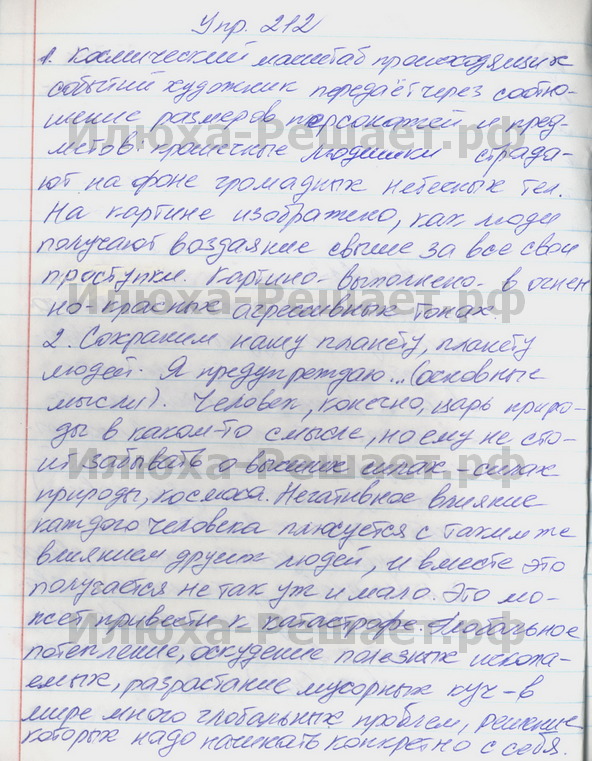 Упр. 212
1. Космический масштаб происходящих
событий художник передаёт через соотно-
шение размеров персонажей и пред-
метов: крошечные людишки страда-
ют на фоне громадных небесных тел.
На картине изображено, как люди
получают воздаяние свыше за все свои
проступки. Картина выполнена в огнен
но-красных агрессивных тонах.
2. Сохраним нашу планету, планету
людей. Я предупреждаю... (основные
мысли). Человек, конечно, царь приро-
ды в каком-то смысле, но ему не сто-
ит забывать о высших силах - силах
природы, космоса. Негативное влияние
каждого человека плюсуется с таким же
влиянием других людей, и вместе это
получается не так уж и мало. Это мо-
жет привести к катастрофе. Глобальное
потепление, оскудение полезных ископа-
емых, разрастание мусорных куч - в
мире много глобальных проблем, решение
которых надо начинать конкретно с себя.
Илюха-Решает.рф
Илюха-Решает.рф
Илюха-Решает.рф
Илюха-Решает.рф